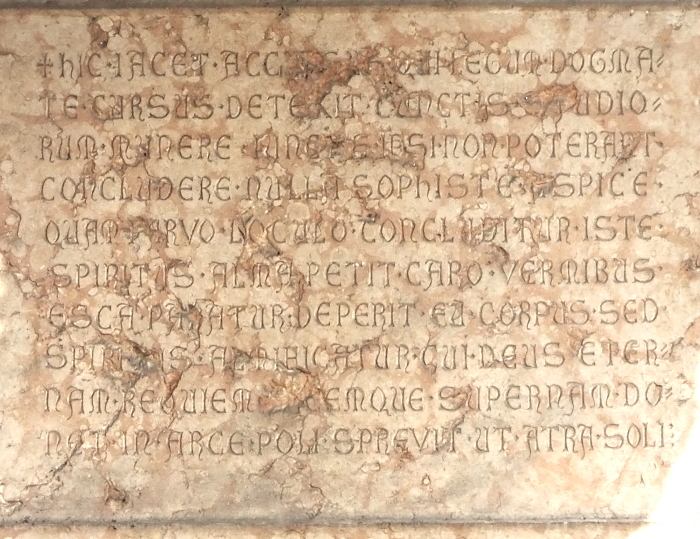 ✝ hIC·IACET·ACC QUI LEGUM·DOGMA⸗
TE·CURSUS·DETEXIT·CUNCTIS·STUDIO⸗
RUM·MUNERE· IPSI·NON·POTERANT·
CONCLUDERE·NULLI·SOPhISTE· ASPICE·
QUAM·PARVO·LOCULO·CONCLUDATUR·ISTE·
SPIRITUS·ALMA·PETIT·CARO·VERMIBUS·
ESCA·PARATUR·DEPERIT·EU·CORPUS·SED·
SPIRITUS· QUI·DEUS·ETER⸗
NAM·REQUIEM· ·SUPERNAM·DO⸗
NET·IN·ARCE·POLI·SPREVIT·UT·ATRA·SOLI